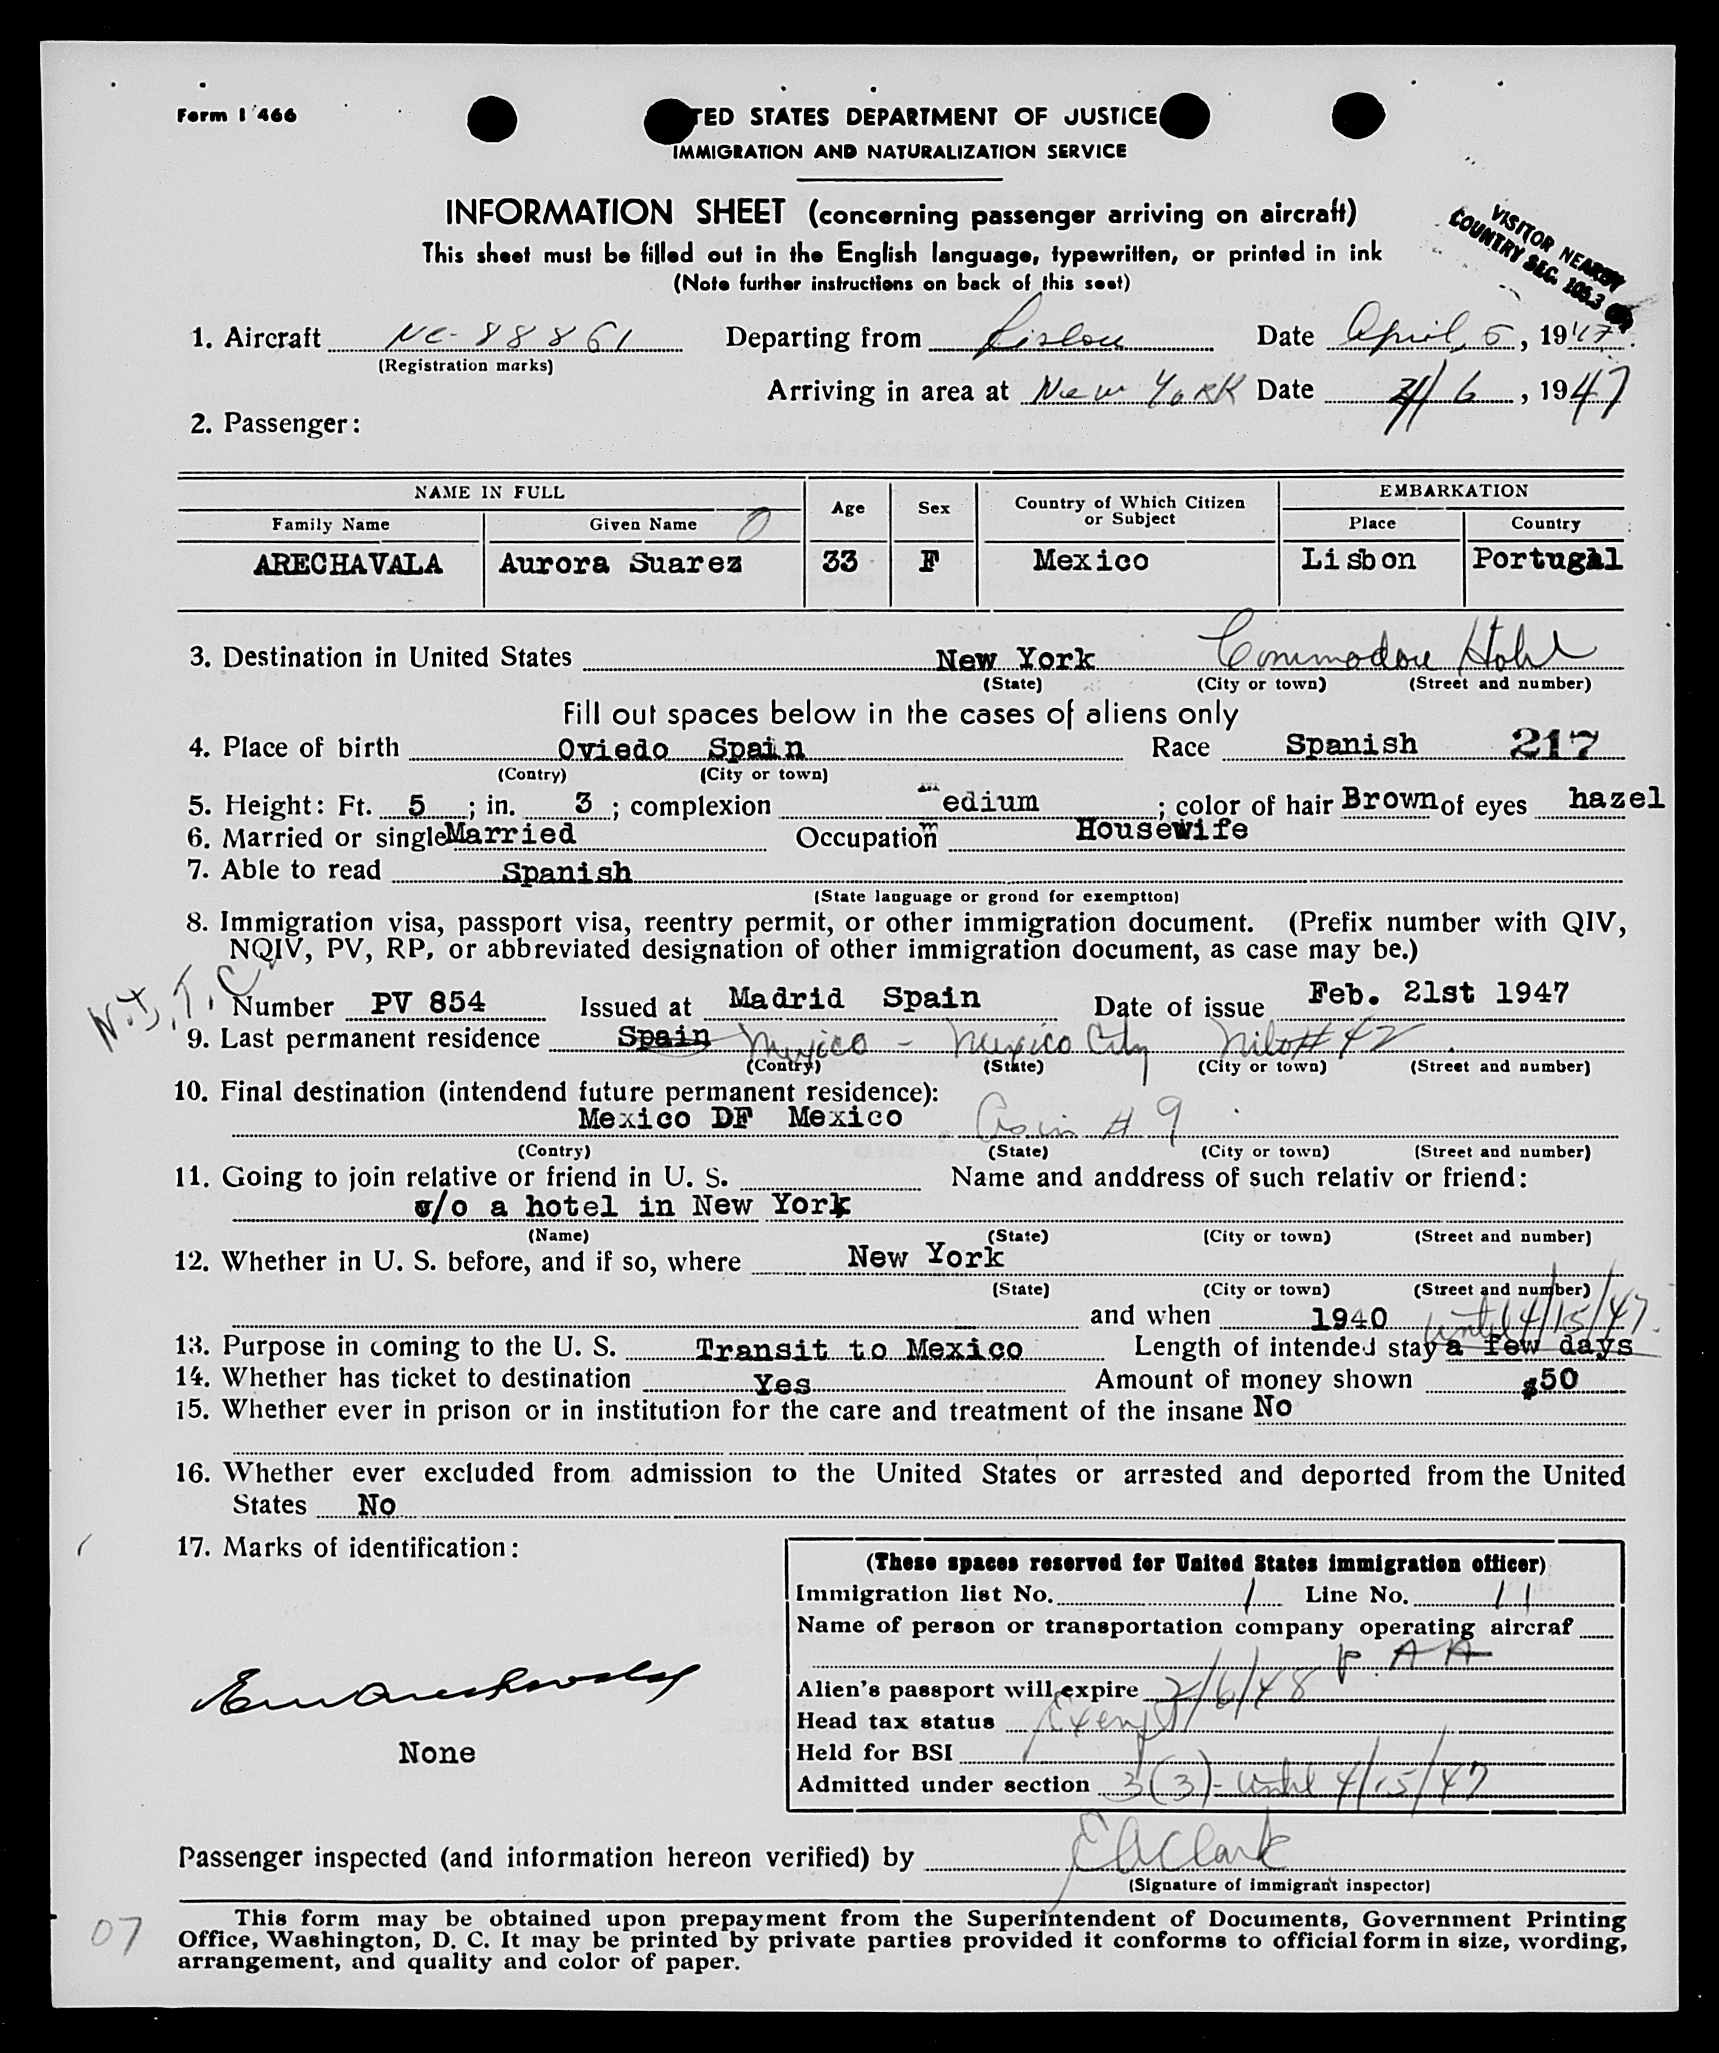 Form I 466
TED STATES DEPARTMENT OF JUSTICE
IMMIGRATION AND NATURALIZATION SERVICE
INFORMATION SHEET (concerning passenger arriving on aircraft)
This sheet must be filled out in the English language, typewritten, or printed in ink
(Note further instructions on back of this seet)
VISITOR NEARBY
COUNTRY SEC. 105.3
1. Aircraft NC-88861 Departing from Lisbon Date April, 5, 1947.
(Registration marks)
Arriving in area at New York Date 4/6, 1947
2. Passenger:
NAME IN FULL Age Sex Country of Which Citizen or Subject EMBARKATION
Family Name Given Name Place Country
ARECHAVALA Aurora Suarez 33 F Mexico Lisbon Portugal
3. Destination in United States New York Commodore Hotel
(State) (City or town) (Street and number)
Fill out spaces below in the cases of aliens only
4. Place of birth Oviedo Spain Race Spanish 217
(Contry) (City or town)
5. Height: Ft. 5; in. 3; complexion medium; color of hair Brown of eyes hazel
6. Married or single Married Occupation Housewife
7. Able to read Spanish
(State language or grond for exemptton)
8. Immigration visa, passport visa, reentry permit, or other immigration document. (Prefix number with QIV,
NQIV, PV, RP, or abbreviated designation of other immigration document, as case may be.)
Number PV 854 Issued at Madrid Spain Date of issue Feb. 21st 1947
9. Last permanent residence Spain Mexico - Mexico City Nilo # 42
(Contry) (State) (City or town) (Street and number)
10. Final destination (intendend future permanent residence):
Mexico DF Mexico # 9
(Contry) (State) (City or town) (Street and number)
11. Going to join relative or friend in U. S. Name and anddress of such relativ or friend:
c/o a hotel in New York
(Name) (State) (City or town) (Street and number)
12. Whether in U. S. before, and if so, where New York
(State) (City or town) (Street and number)
and when 1940 until 4/15/47.
13. Purpose in coming to the U. S. Transit to Mexico Length of intended stay a few days
14. Whether has ticket to destination Yes Amount of money shown $50
15. Whether ever in prison or in institution for the care and treatment of the insane No
16. Whether ever excluded from admission to the United States or arrested and deported from the United
States No
17. Marks of identification:
None
(These spaces reserved for United States immigration officer)
Immigration list No. 1 Line No. 11
Name of person or transportation company operating aircraf
P.AA
Alien's passport will expire 2/6/48
Head tax status Exempt
Held for BSI
Admitted under section 3(3)- until 4/15/47
Passenger inspected (and information hereon verified) by E A Clark
(Signature of immigrant inspector)
This form may be obtained upon prepayment from the Superintendent of Documents, Government Printing
Office, Washington, D. C. It may be printed by private parties provided it conforms to official form in size, wording,
arrangement, and quality and color of paper.
07